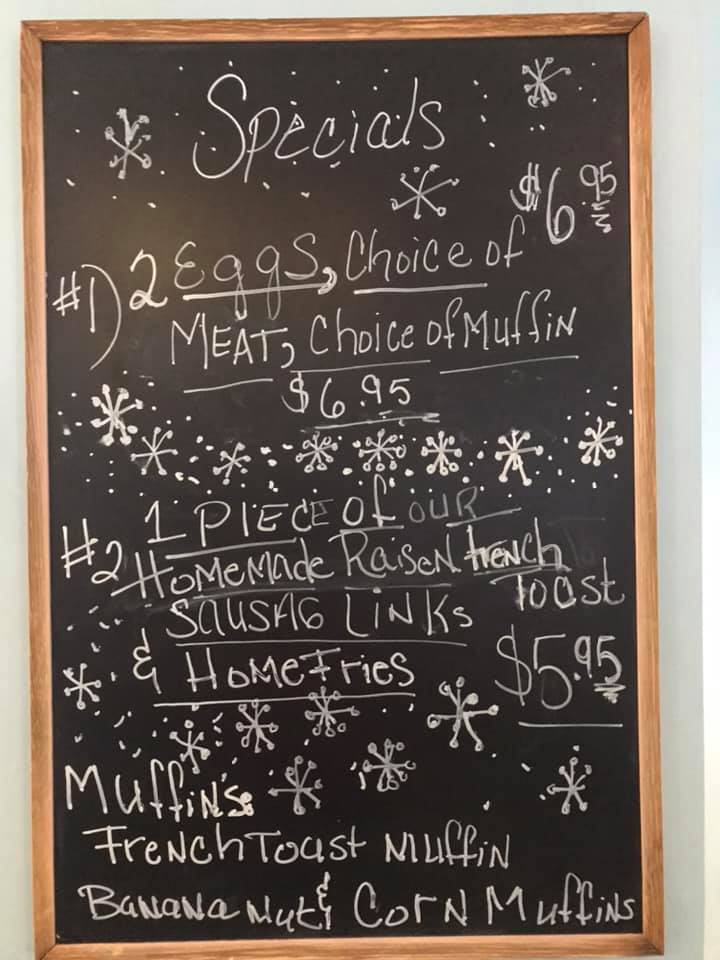 Specials
$6.95
#1) 2 Eggs, Choice of
MEAT, Choice of Muffin
$6.95
#2 1 PIECE of OUR
HomeMade Raisen french
Toast
SAUSAG LINKS
& HomeFries
$5.95
Muffin's:
French Toast Muffin
Banana Nut & Corn Muffins